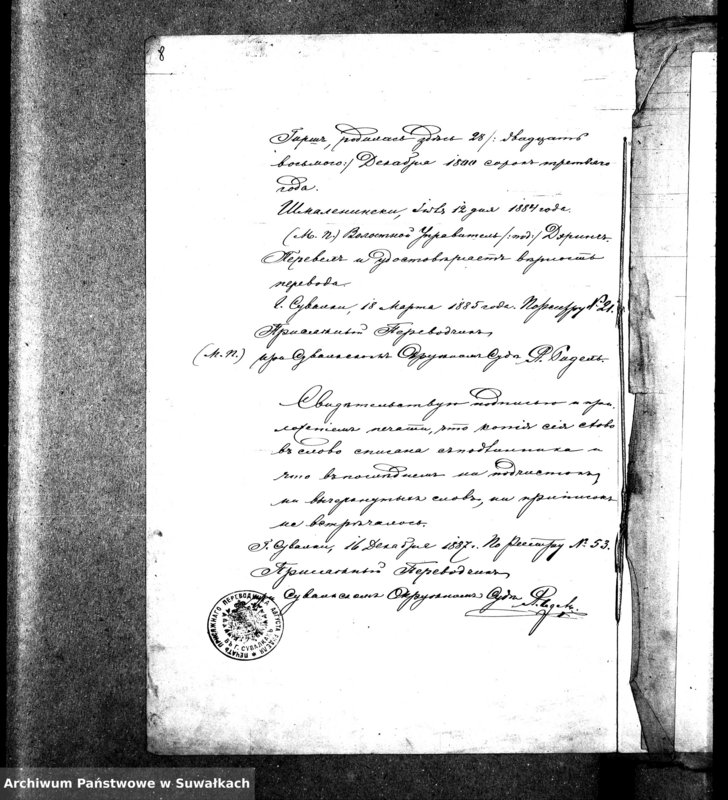 8
Гирш, родилась здѣсь 28 /: двадцать
восьмого :/ Декабря 1800 сорокъ третьяго
года.
Шмаленински, Іюль 12 дня 1884 года.
(М. П.) Волостной Управитель /: под :/
Перевелъ и удостовѣряетъ вѣрность
перевода.
г. Сувалки, 18 Марта 1885 года. По реестру № 21.
Присяжный Переводчикъ
(М. П.) при Сувалкскомъ Окружномъ Судѣ А. Гидель.
Свидѣтельствую подписью и при-
ложеніемъ печати, что копія сія слово
въ слово списана съ подлинника и
что въ послѣднемъ ни подчистокъ,
ни вычеркнутыхъ словъ, ни приписокъ
не встрѣчалось.
Г. Сувалки, 16 Декабря 1887 г. По Реестру № 53.
Присяжный Переводчикъ
при Сувалкскомъ Окружномъ Судѣ
ПЕЧАТЬ ПРИСЯЖНАГО ПЕРЕВОДЧИКА АВГУСТА ГИДЕЛИ
ВЪ Г. СУВАЛКАХЪ
Archiwum Państwowe w Suwałkach